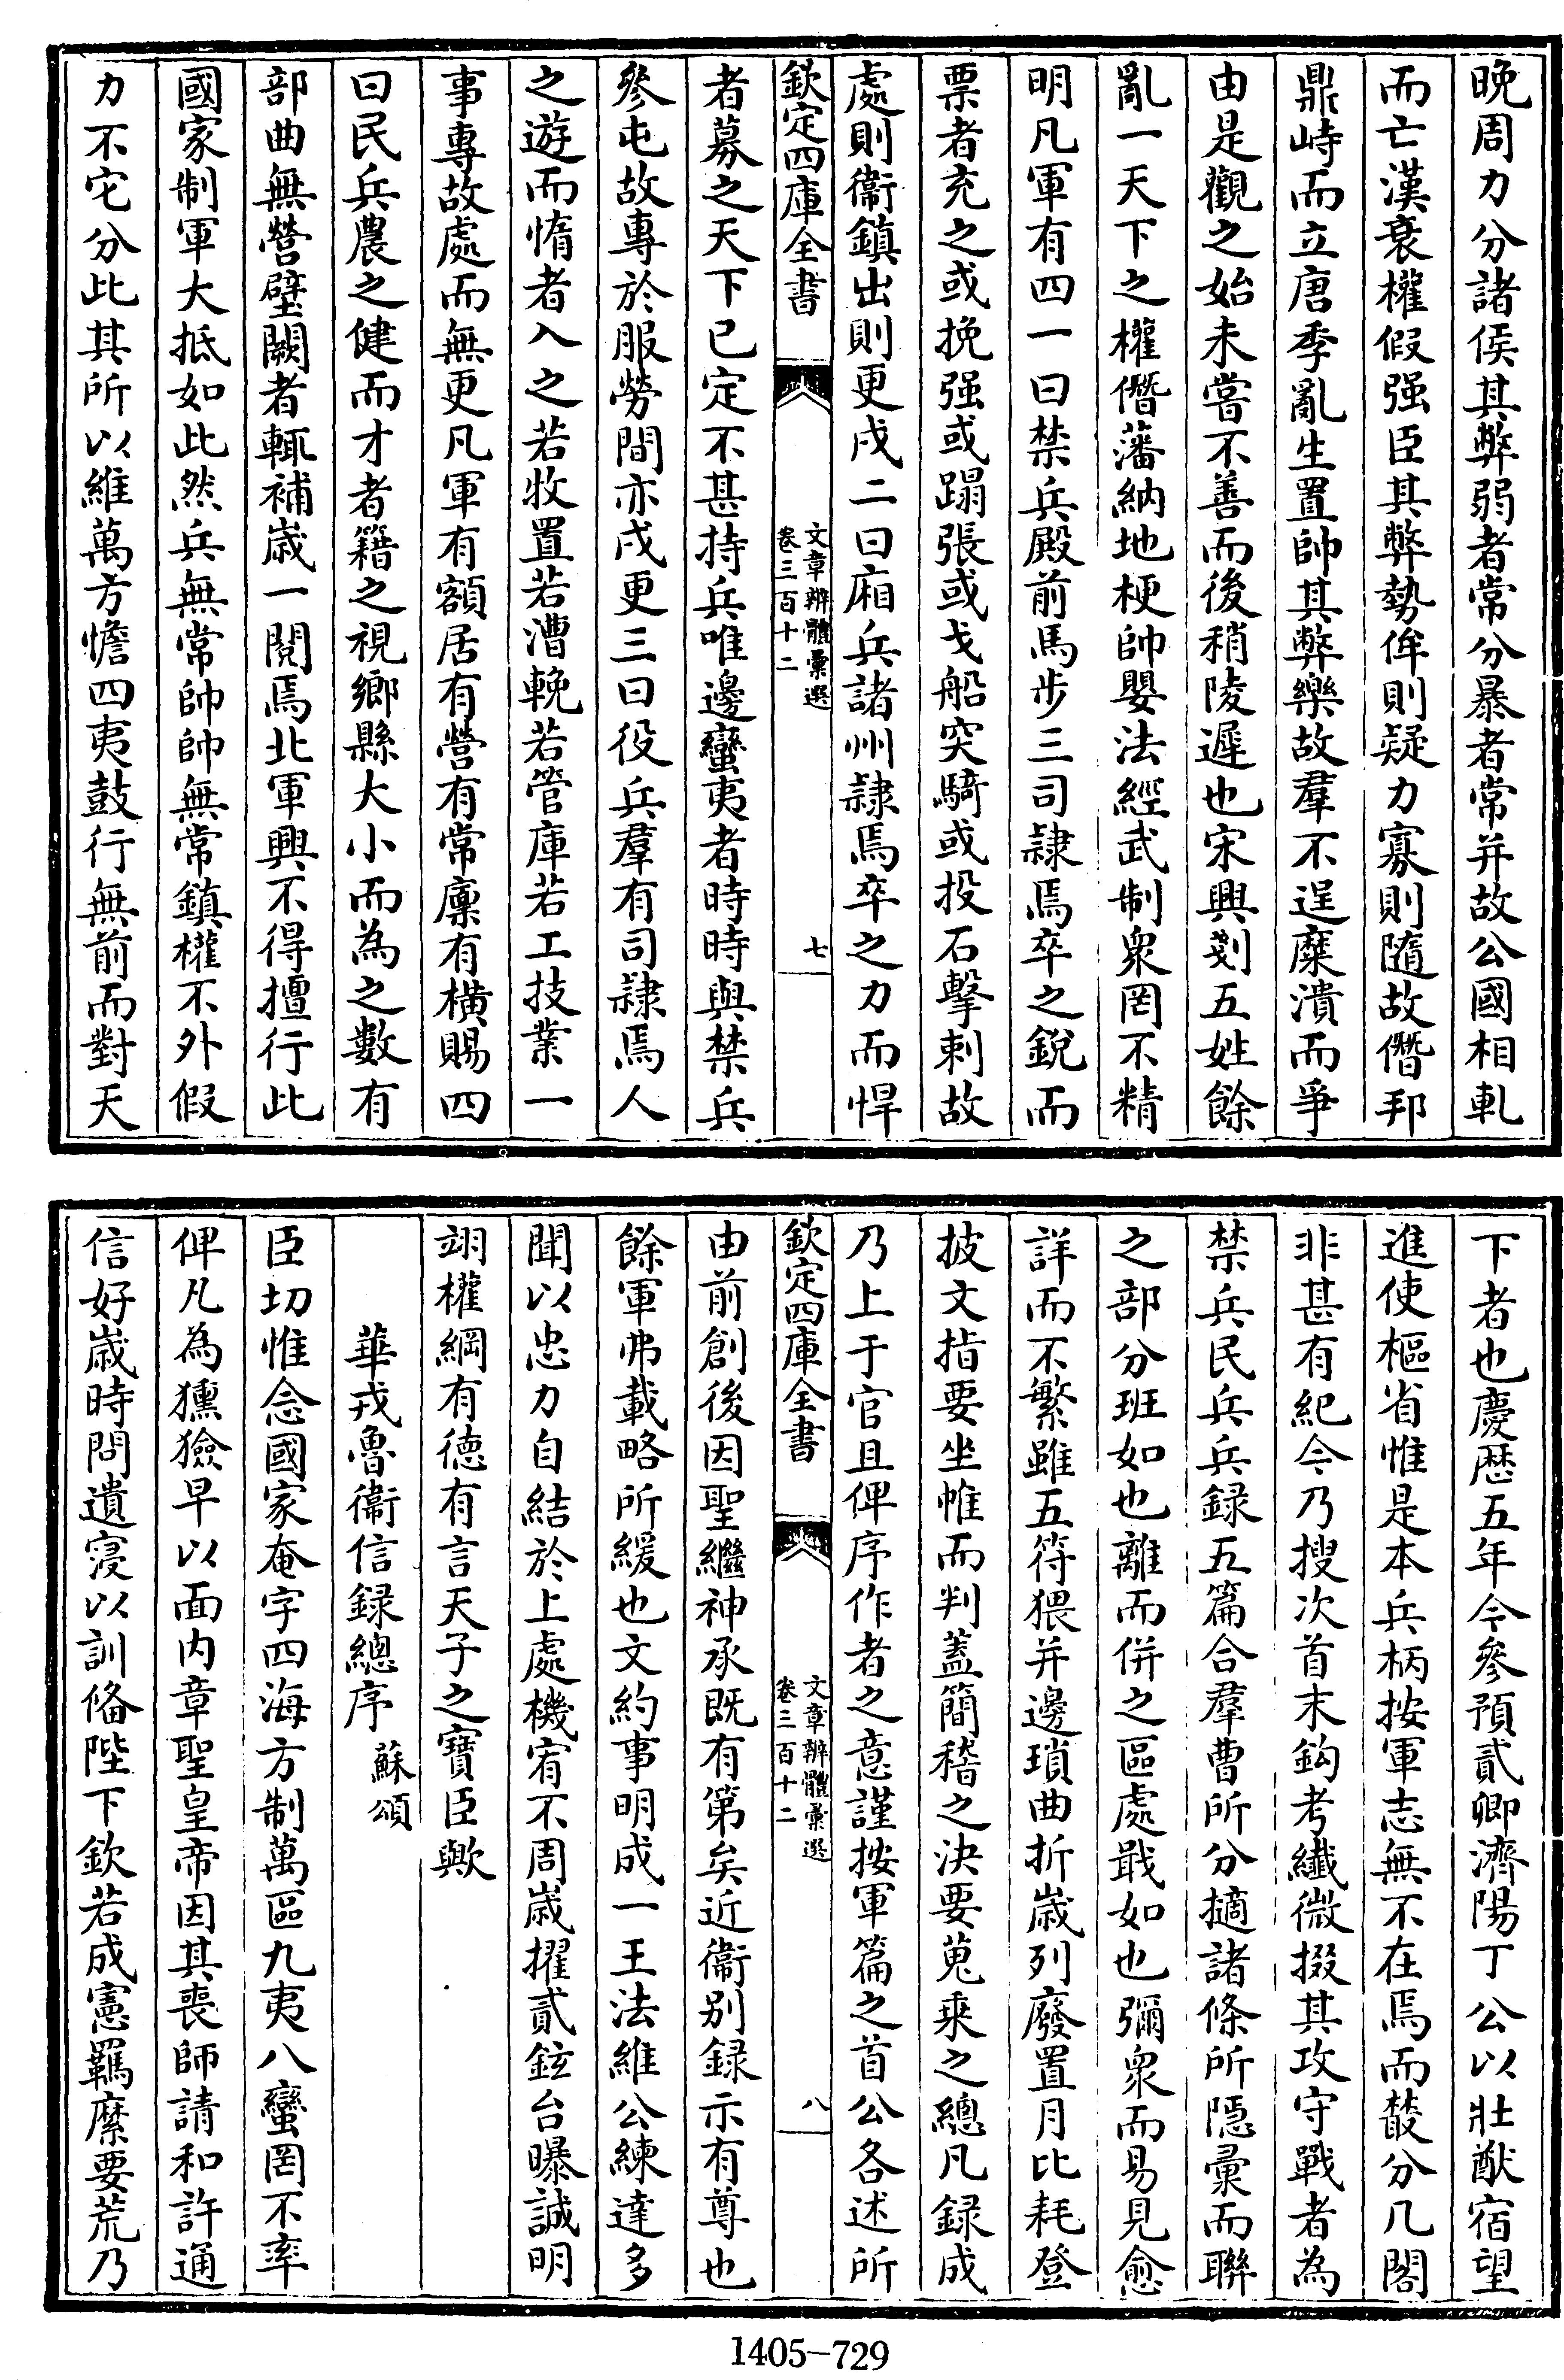 晚周力分諸侯其弊弱者常分暴者常并故公國相軋
而亡漢衰權假强臣其弊勢侔則疑力寡則隨故僭邦
鼎峙而立唐季亂生置帥其弊樂故羣不逞糜潰而爭
由是觀之始未嘗不善而後稍陵遲也宋興剗五姓餘
亂一天下之權僭藩納地梗帥嬰法經武制衆罔不精
明凡軍有四一曰禁兵殿前馬步三司隷焉卒之鋭而
票者充之或挽强或蹋張或戈船突騎或投石擊刺故
處則衞鎮出則更戍二曰廂兵諸州隷焉卒之力而悍
欽定四庫全書
文章辨體彙選
卷三百十二
七
者募之天下已定不甚持兵唯邊蠻夷者時時與禁兵
參屯故專於服勞間亦戍更三曰役兵羣有司隷焉人
之遊而惰者入之若牧置若漕輓若管庫若工技業一
事專故處而無更凡軍有額居有營有常廩有横賜四
曰民兵農之健而才者籍之視鄉縣大小而為之數有
部曲無營壁闕者輒補歲一閱焉北軍興不得擅行此
國家制軍大抵如此然兵無常帥帥無常鎮權不外假
力不它分此其所以維萬方憺四夷鼓行無前而對天
下者也慶歷五年今參預貳卿濟陽丁公以壯猷宿望
進使樞省惟是本兵柄按軍志無不在焉而藂分几閣
非甚有紀今乃搜次首末鈎考纖微掇其攻守戰者為
禁兵民兵兵録五篇合羣曹所分擿諸條所隱彙而聯
之部分班如也離而併之區處戢如也彌衆而易見愈
詳而不繁雖五符猥并邊瑣曲折歲列廢置月比耗登
披文指要坐帷而判蓋簡稽之決要蒐乘之總凡録成
乃上于官且俾序作者之意謹按軍篇之首公各述所
欽定四庫全書
文章辨體彙選
卷三百十二
八
由前創後因聖繼神承既有第矣近衞别録示有尊也
餘軍弗載略所緩也文約事明成一王法維公練達多
聞以忠力自結於上處機宥不周歲擢貳鉉台曝誠明
翊權綱有德有言天子之寶臣歟
華戎魯衞信録總序 蘇頌
臣切惟念國家奄字四海方制萬區九夷八蠻罔不率
俾凡為獯獫早以面内章聖皇帝因其喪師請和許通
信好歲時問遺寖以訓脩陛下欽若成憲羈縻要荒乃
1405-729